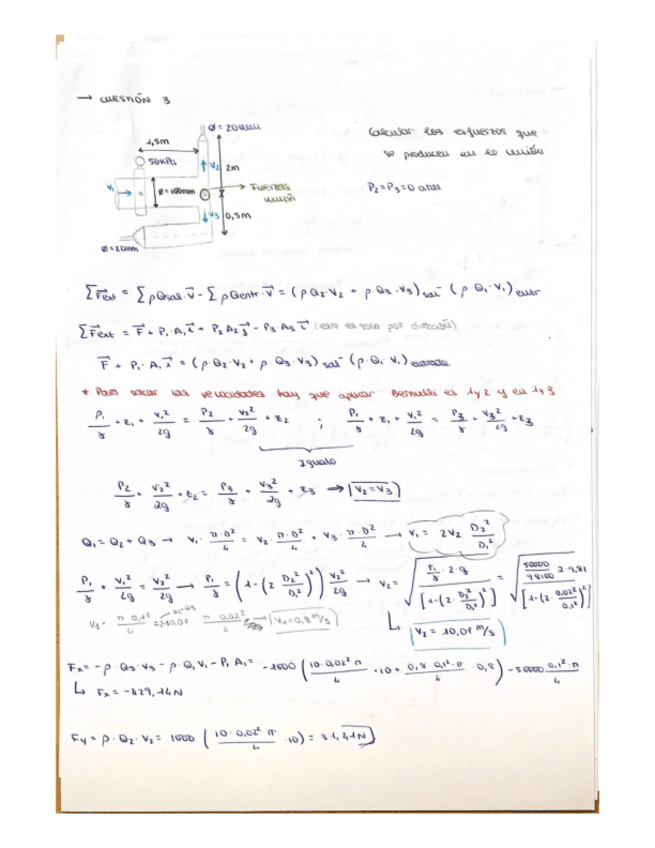 → CUESTIÓN 3
Ø = 20mm
1,5m
50KPa
V₂
2m
V₁
Ø = 100mm
Fuerzas
unión
V₃
0,5m
Ø = 20mm
Calcular los esfuerzos que
se producen en la unión
P₂ = P₃ = 0 atm
ΣF⃗ext = Σ ρQsal·v⃗ - Σ ρQentr·v⃗ = (ρ Q₂·V₂ + ρ·Q₃·V₃)sal - (ρ·Q₁·V₁)entr
ΣF⃗ext = F⃗ + P₁·A₁i⃗ + P₂A₂j⃗ - P₃A₃i⃗ (esto es solo por dirección)
F⃗ + P₁·A₁i⃗ = (ρ·Q₂·V₂ + ρ·Q₃·V₃)sal - (ρ·Q₁·V₁)entrada
* Para sacar las velocidades hay que aplicar Bernulli es 1 y 2 y en 1 y 3
P₁/γ + z₁ + V₁²/2g = P₂/γ + V₂²/2g + z₂ ; P₁/γ + z₁ + V₁²/2g = P₃/γ + V₃²/2g + z₃
Igualo
P₂/γ + V₂²/2g + z₂ = P₃/γ + V₃²/2g + z₃ → V₂ = V₃
Q₁ = Q₂ + Q₃ → V₁·π·D²/4 = V₂·π·D²/4 + V₃·π·D²/4 → V₁ = 2V₂ D₂²/D₁²
P₁/γ + V₁²/2g = V₂²/2g → P₁/γ = (1-(2 D₂²/D₁²)²) V₂²/2g → V₂ = √(P₁/γ·2g / [1-(2·D₂²/D₁²)²]) = √(50000/98100 2·9,81 / [1-(2·0,02²/0,1²)²])
V₁· π 0,1²/4 = 10,01 π 0,02²/4 → V₁ = 0,8 m/s
↳ V₂ = 10,01 m/s
Fx = -ρ·Q₃·V₃ - ρ·Q₁V₁ - P₁A₁ = -1000 (10·0,02² π/4 ·10 + 0,8·0,1²·π/4 ·0,8) - 50000 0,1²·π/4
↳ Fx = -429,14N
Fy = ρ·Q₂·V₂ = 1000 (10·0,02² π/4 ·10) = 31,41N